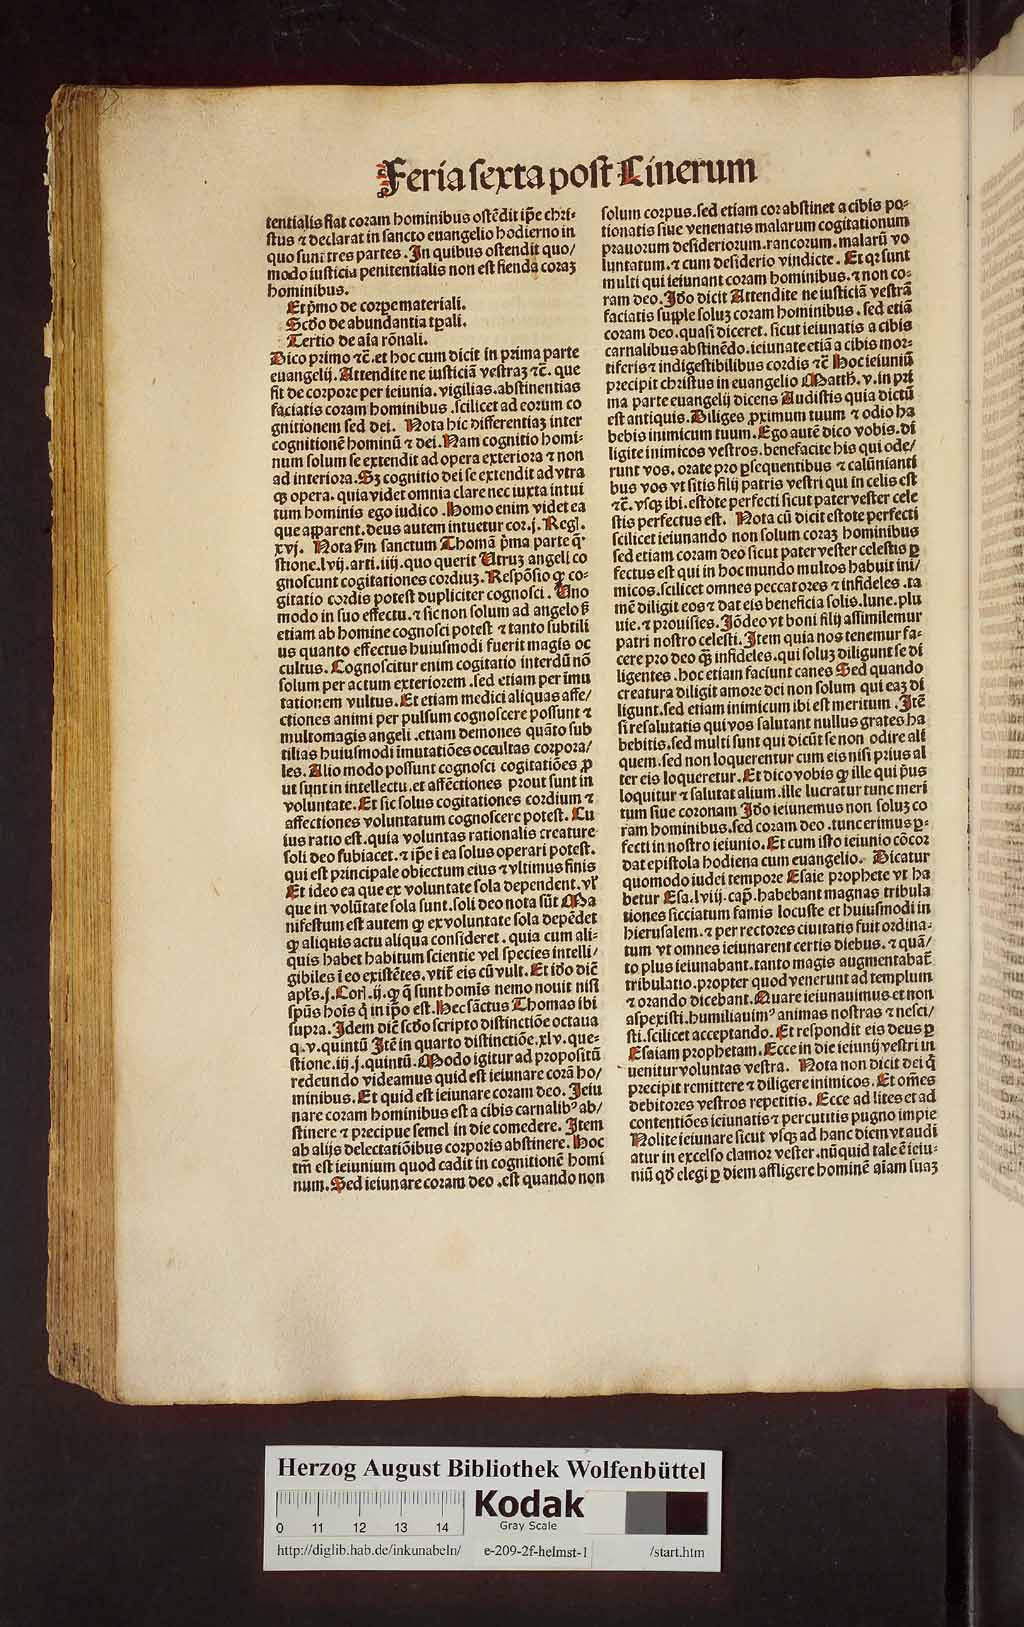 Feria sexta post Cinerum
tentialis fiat coram hominibus ostēdit ip̄e chri-
stus ⁊ declarat in sancto euangelio hodierno in
quo sunt tres partes. In quibus ostendit quo/
modo iusticia penitentialis non est fienda coraꝫ
hominibus.
Et p̄mo de corpe materiali.
Scḋo de abundantia tp̄ali.
Tertio de aīa rōnali.
Dico primo ⁊c̄. et hoc cum dicit in prima parte
euangelij. Attendite ne iusticiā vestraꝫ ⁊c̄. que
fit de corpore per ieiunia. vigilias. abstinentias
faciatis coram hominibus .scilicet ad eorum co
gnitionem sed dei. Nota hic differentiaꝫ inter
cognitionē hominū ⁊ dei. Nam cognitio homi-
num solum se extendit ad opera exteriora ⁊ non
ad interiora. Sꝫ cognitio dei se extendit ad vtra
qꝫ opera. quia videt omnia clare nec iuxta intui
tum hominis ego iudico. Homo enim videt ea
que apparent. deus autem intuetur cor. j. Regꝭ.
xvj. Nota s̄m sanctum Thomā p̄ma parte q̄-
stione. lvij. arti. iiij. quo querit Utruꝫ angeli co
gnoscunt cogitationes cordiuꝫ. Respōsio ꝙ co-
gitatio cordis potest dupliciter cognosci. Uno
modo in suo effectu. ⁊ sic non solum ad angelo sꝫ
etiam ab homine cognosci potest ⁊ tanto subtili
us quanto effectus huiusmodi fuerit magis oc
cultus. Cognoscitur enim cogitatio interdū nō
solum per actum exteriorem. sed etiam per īmu
tationem vultus. Et etiam medici aliquas affe/
ctiones animi per pulsum cognoscere possunt ⁊
multomagis angeli. etiam demones quāto sub
tilias huiusmodi īmutatiōes occultas corpora/
les. Alio modo possunt cognosci cogitatiōes ꝓ
ut sunt in intellectu. et affectiones prout sunt in
voluntate. Et sic solus cogitationes cordium ⁊
affectiones voluntatum cognoscere potest. Cu
ius ratio est. quia voluntas rationalis creature
soli deo subiacet. ⁊ ip̄e ī ea solus operari potest.
qui est principale obiectum eius ⁊ vltimus finis
Et ideo ea que ex voluntate sola dependent. vl̄
que in volūtate sola sunt. soli deo nota sūt Ma
nifestum est autem ꝙ ex voluntate sola depēdet
ꝙ aliquis actu aliqua consideret. quia cum ali-
quis habet habitum scientie vel species intelli/
gibiles ī eo existētes. vtit̄ eis cū vult. Et iḋo diē
apl̄s. j. Corꝭ. ij. ꝙ q̄ sunt homīs nemo nouit nisi
spūs hoīs q̄ in ip̄o est. Hec sāctus Thomas ibi
supra. Idem diē scḋo scripto distinctiōe octaua
q. v. quintū Itē in quarto distinctiōe. xlv. que-
stione. iij. j. quintū. Modo igitur ad propositū
redeundo videamus quid est ieiunare corā ho/
minibus. Et quid est ieiunare coram deo. Ieiu
nare coram hominibus est a cibis carnalibꝰ ab/
stinere ⁊ precipue semel in die comedere. Item
ab alijs delectatiōibus corporis abstinere. Hoc
tm̄ est ieiunium quod cadit in cognitionē homi
num. Sed ieiunare coram deo .est quando non
solum corpus. sed etiam cor abstinet a cibis po-
tionatis siue venenatis malarum cogitationum
prauorum desideriorum. rancorum. malarū vo
luntatum. ⁊ cum desiderio vindicte. Et qꝛ sunt
multi qui ieiunant coram hominibus. ⁊ non co-
ram deo. Iḋo dicit Attendite ne iusticiā vestrā
faciatis supple soluꝫ coram hominibus. sed etiā
coram deo. quasi diceret. sicut ieiunatis a cibis
carnalibus abstinēdo. ieiunate etiā a cibis mor-
tiferis ⁊ indigestibilibus cordis ⁊c̄ Hoc ieiuniū
precipit christus in euangelio Matth. v. in pri
ma parte euangelij dicens Audistis quia dictū
est antiquis. Diliges ꝓximum tuum ⁊ odio ha
bebis inimicum tuum. Ego autē dico vobis. di
ligite inimicos vestros. benefacite his qui ode/
runt vos. orate pro ꝑsequentibus ⁊ calūnianti
bus vos vt sitis filij patris vestri qui in celis est
⁊c̄. vsqꝫ ibi. estote perfecti sicut pater vester cele
stis perfectus est. Nota cū dicit estote perfecti
scilicet ieiunando non solum coraꝫ hominibus
sed etiam coram deo sicut pater vester celestis ꝑ
fectus est qui in hoc mundo multos habuit ini/
micos. scilicet omnes peccatores ⁊ infideles. ta
mē diligit eos ⁊ dat eis beneficia solis. lune. plu
uie. ⁊ prouisies. Iōdeo vt boni filij assimilemur
patri nostro celesti. Item quia nos tenemur fa-
cere pro deo q̄ꝫ infideles. qui soluꝫ diligunt se di
ligentes. hoc etiam faciunt canes Sed quando
creatura diligit amore dei non solum qui eaꝫ di
ligunt. sed etiam inimicum ibi est meritum. Itē
si resalutatis qui vos salutant nullus grates ha
bebitis. sed multi sunt qui dicūt se non odire ali
quem. sed non loquerentur cum eis nisi prius al
ter eis loqueretur. Et dico vobis ꝙ ille qui p̄us
loquitur ⁊ salutat alium. ille lucratur tunc meri
tum siue coronam Iḋo ieiunemus non soluꝫ co
ram hominibus. sed coram deo. tunc erimus ꝑ-
fecti in nostro ieiunio. Et cum isto ieiunio cōcor
dat epistola hodierna cum euangelio. Dicatur
quomodo iudei tempore Esaie prophete vt ha
betur Esa. lviij. cap̄. habebant magnas tribula
tiones sicciatum famis locuste et huiusmodi in
hierusalem. ⁊ per rectores ciuitatis fuit ordina-
tum vt omnes ieiunarent certis diebus. ⁊ quā/
to plus ieiunabant. tanto magis augmentabat̄
tribulatio. propter quod venerunt ad templum
⁊ orando dicebant. Quare ieiunauimus et non
aspexisti. humiliauimꝰ animas nostras ⁊ nesci/
sti. scilicet acceptando. Et respondit eis deus ꝑ
Esaiam prophetam. Ecce in die ieiunij vestri in
uenitur voluntas vestra. Nota non dicit dei q̄
precipit remittere ⁊ diligere inimicos. Et om̄es
debitores vestros repetitis. Ecce ad lites et ad
contentiōes ieiunatis ⁊ percutitis pugno impie
Nolite ieiunare sicut vsqꝫ ad hanc diem vt audi
atur in excelso clamor vester. nūquid tale ē ieiu-
niū qḋ elegi ꝑ diem affligere hominē aīam suaꝫ
Herzog August Bibliothek Wolfenbüttel
Kodak
Gray Scale
0 11 12 13 14
http://diglib.hab.de/inkunabeln/ e-209-2f-helmst-1 /start.htm